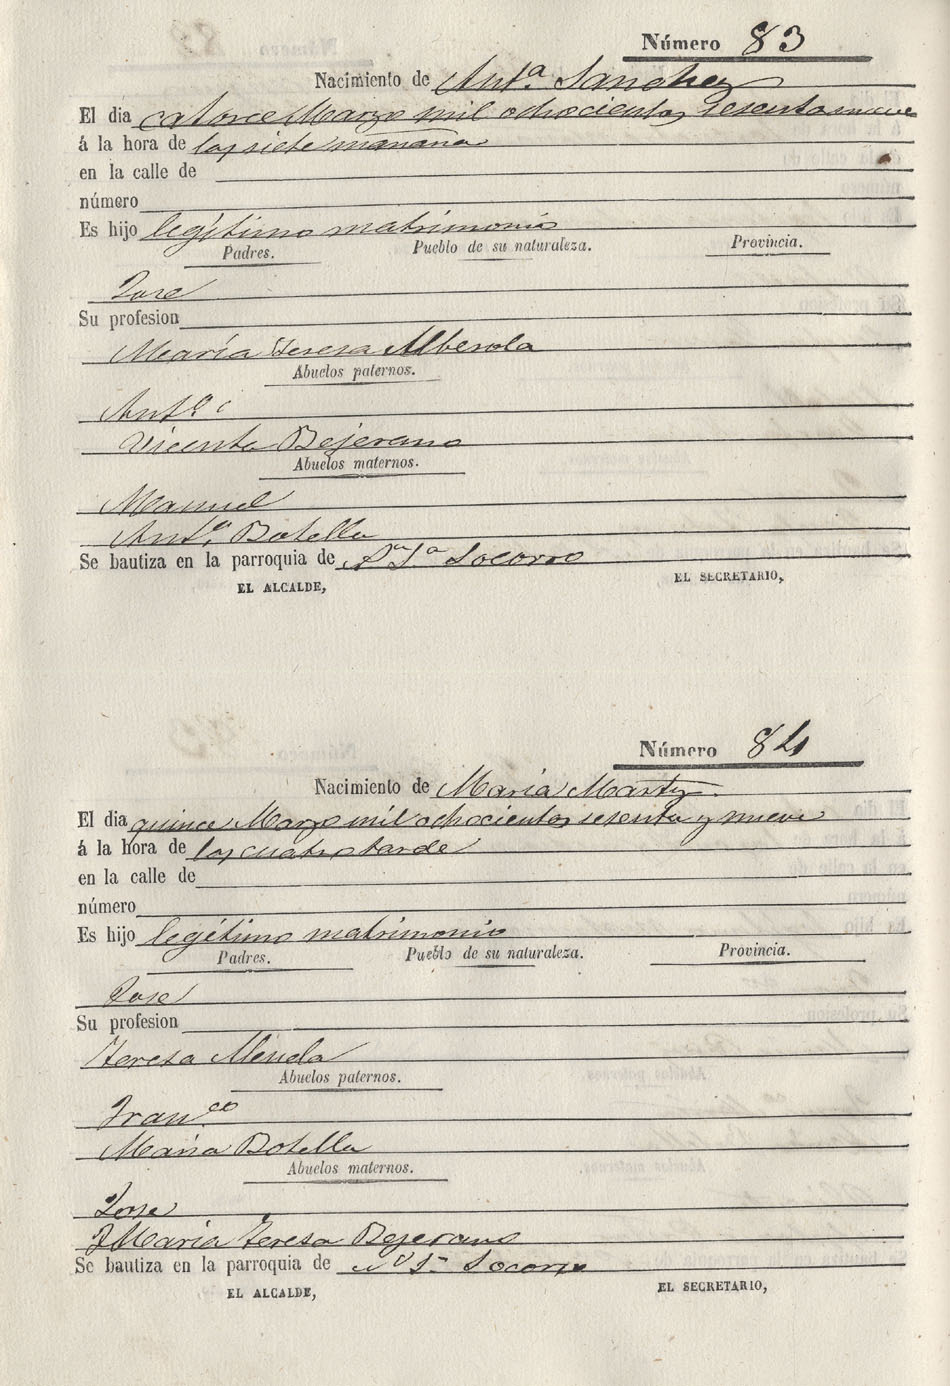 Número 83
Nacimiento de Antª Sanchez
El dia catorce Marzo mil ochocientos sesenta nueve
á la hora de las siete mañana
en la calle de
número
Es hijo legítimo matrimonio
Padres. Pueblo de su naturaleza. Provincia.
Jose
Su profesion
María Teresa Alberola
Abuelos paternos.
Antº
Vicenta Bejerano
Abuelos maternos.
Manuel
Antª Botella
Se bautiza en la parroquia de Nª Sª Socorro
EL ALCALDE, EL SECRETARIO,
Número 84
Nacimiento de María Martz.
El dia quince Marzo mil ochocientos sesenta y nueve
á la hora de las cuatro tarde
en la calle de
número
Es hijo legítimo matrimonio
Padres. Pueblo de su naturaleza. Provincia.
Jose
Su profesion
Teresa
Abuelos paternos.
Franco
María Botella
Abuelos maternos.
Jose
María Teresa Bejerano
Se bautiza en la parroquia de Nª Sª Socorro
EL ALCALDE, EL SECRETARIO,